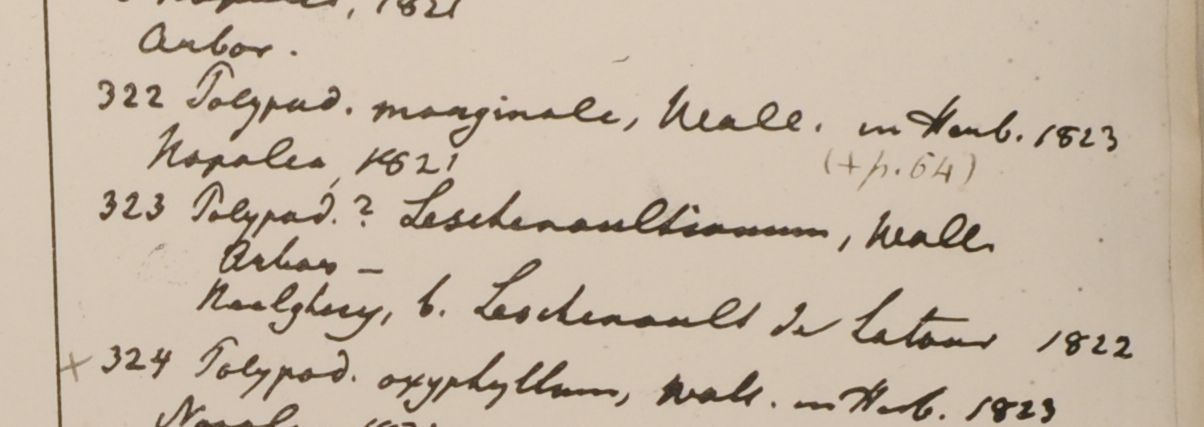 Napalea, 1821
Arbor.
322 Polypod. marginale, Wall. in Herb. 1823
Napalea, 1821 (+p.64)
323 Polypod.? Leschenaultianum, Wall.
Arbor —
Neelghery, b. Leschenault de Latour 1822
× 324 Polypod. oxyphyllum, Wall. in Herb. 1823